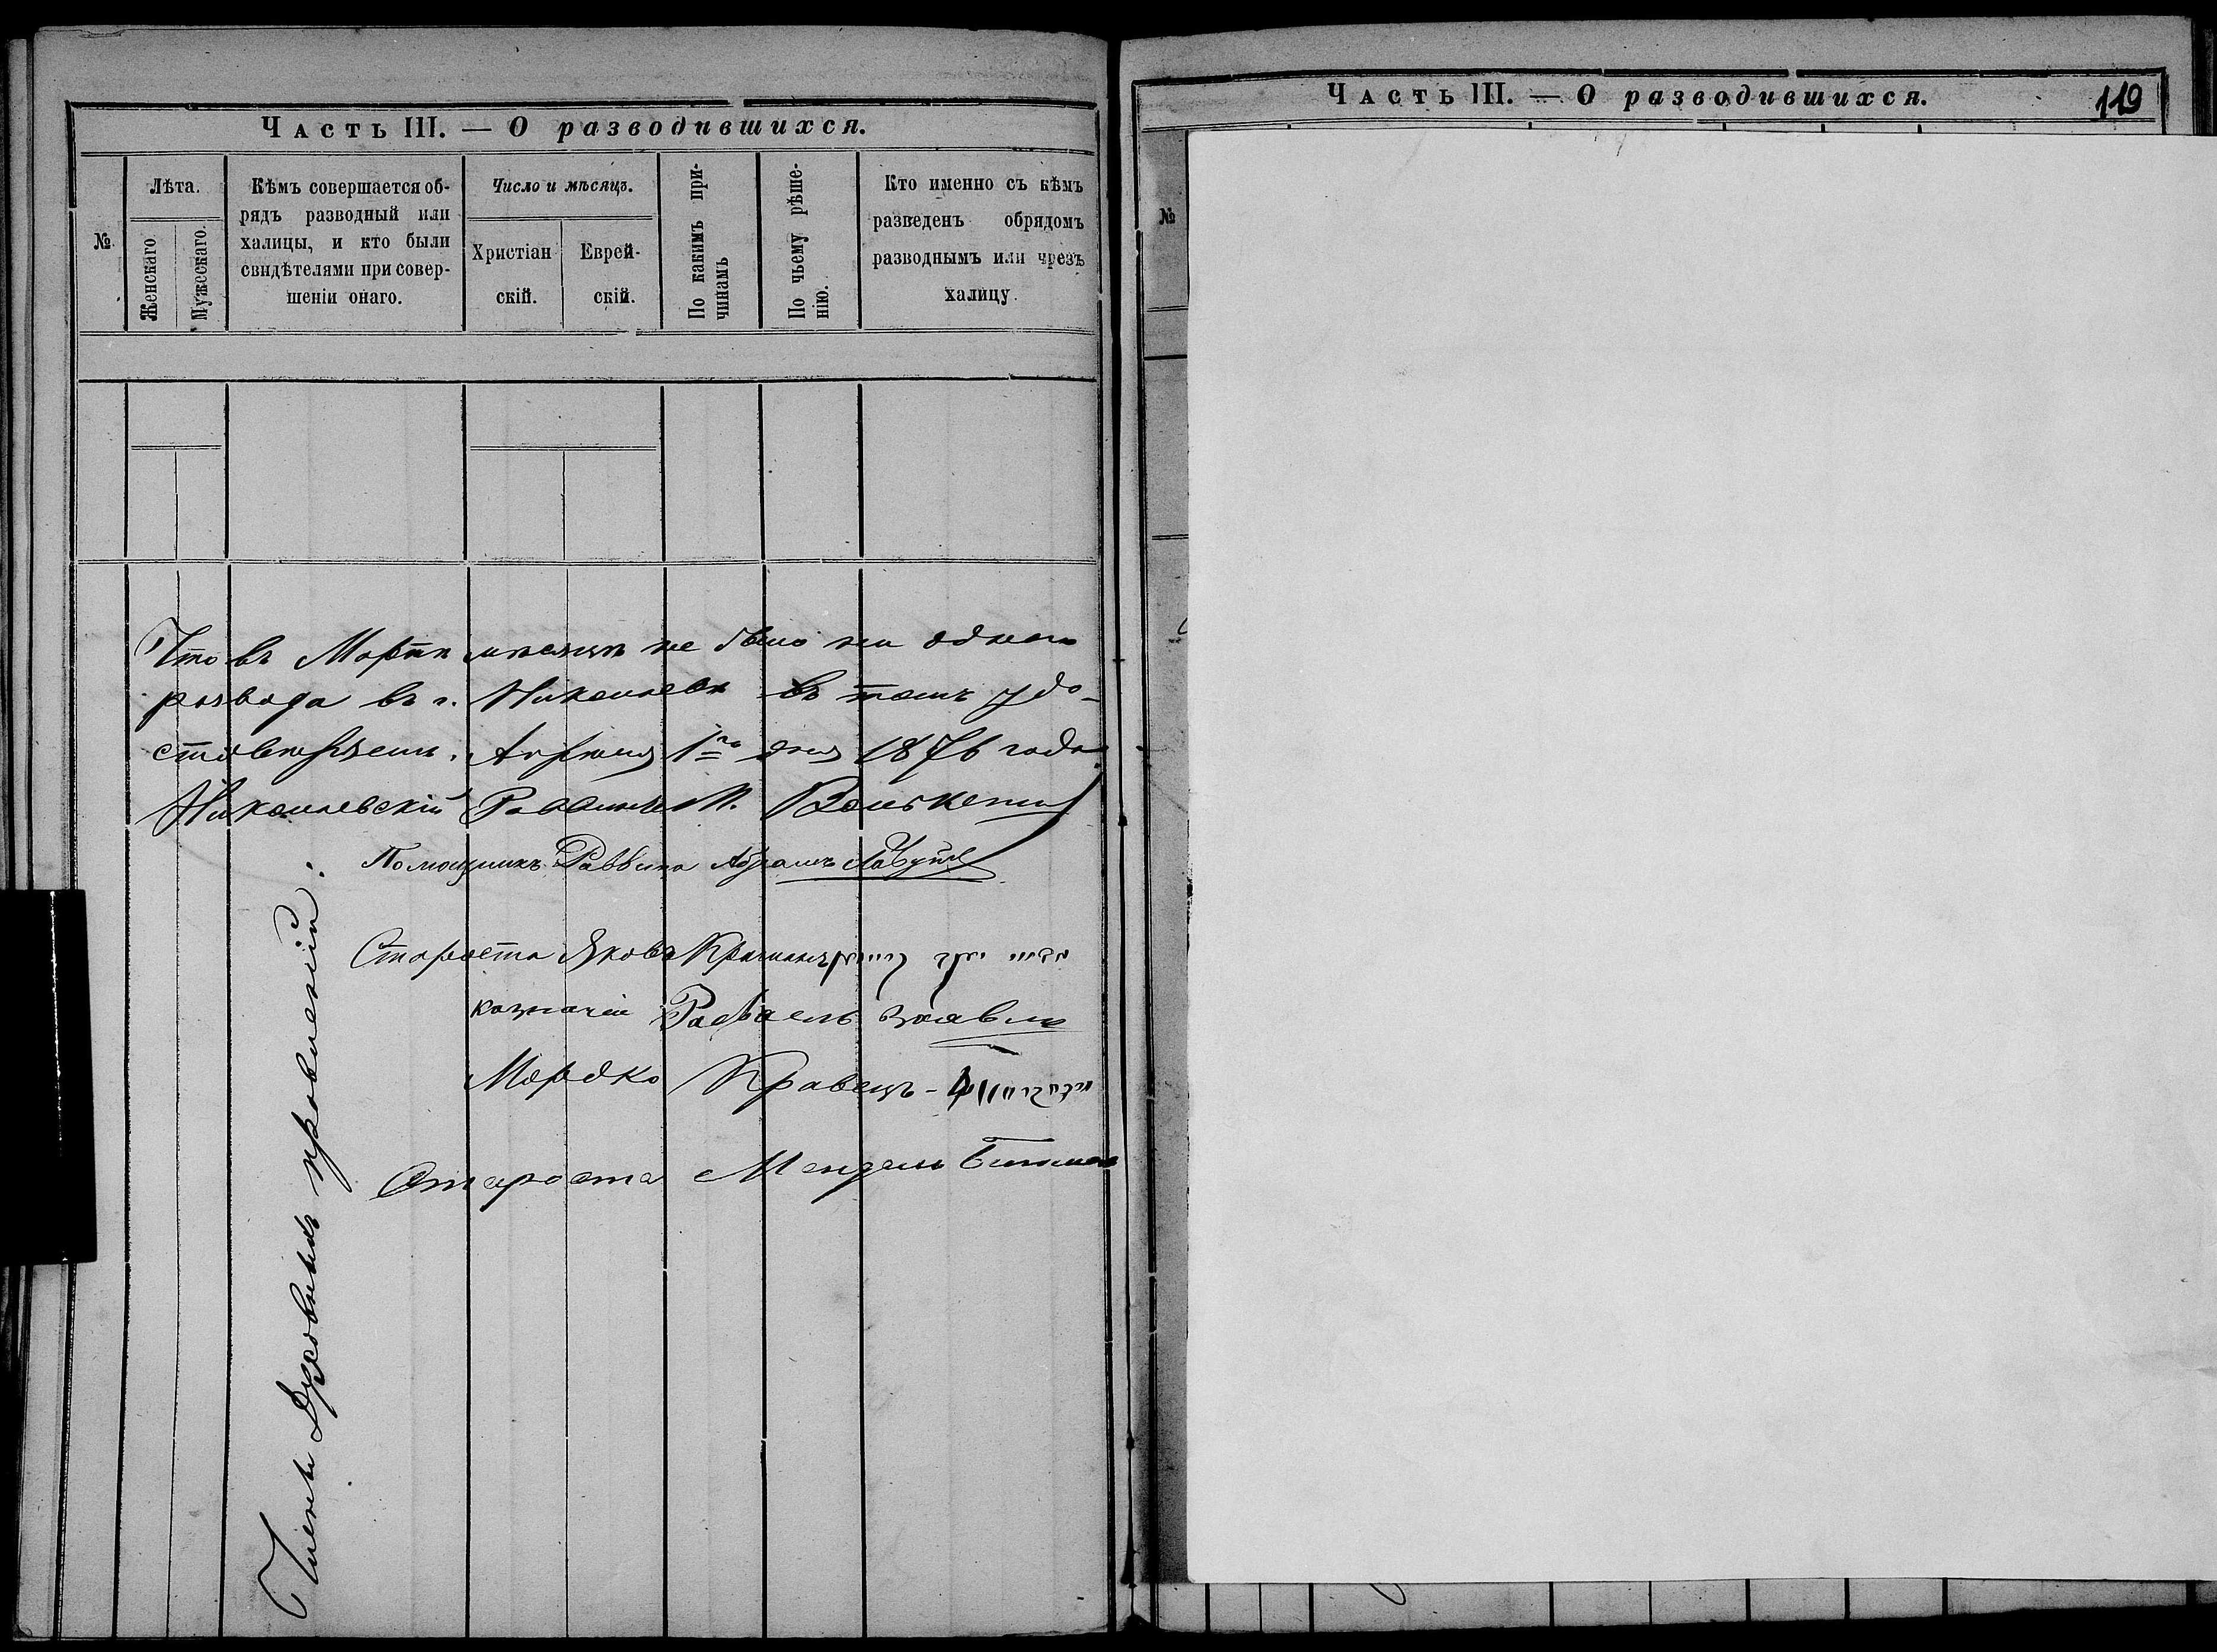 Часть III. — О разводившихся.
№
Лѣта.
Женскаго
Мужескаго.
Кѣмъ совершается об-
рядъ разводный или
халицы, и кто были
свидѣтелями при совер-
шеніи онаго.
Число и мѣсяцъ.
Христіан
скій.
Еврей-
скій.
По какимъ при-
чинамъ
По чьему рѣше-
нію.
Кто именно съ кѣмъ
разведенъ обрядомъ
разводнымъ или чрезъ
халицу.
Что въ Мартѣ мѣсяцѣ не было ни одного
развода въ г. Николаевѣ въ томъ удо-
стовѣряемъ. Апрѣля 1го дня 1876 года
Николаевскій Раввинъ М.
Помощникъ Раввина Абрамъ
Староста Яковъ
казначій Рафаель
Мордко Кравецъ -
Староста Мендель
Члены Духовныхъ правленій:
Часть III. — О разводившихся.
119
№